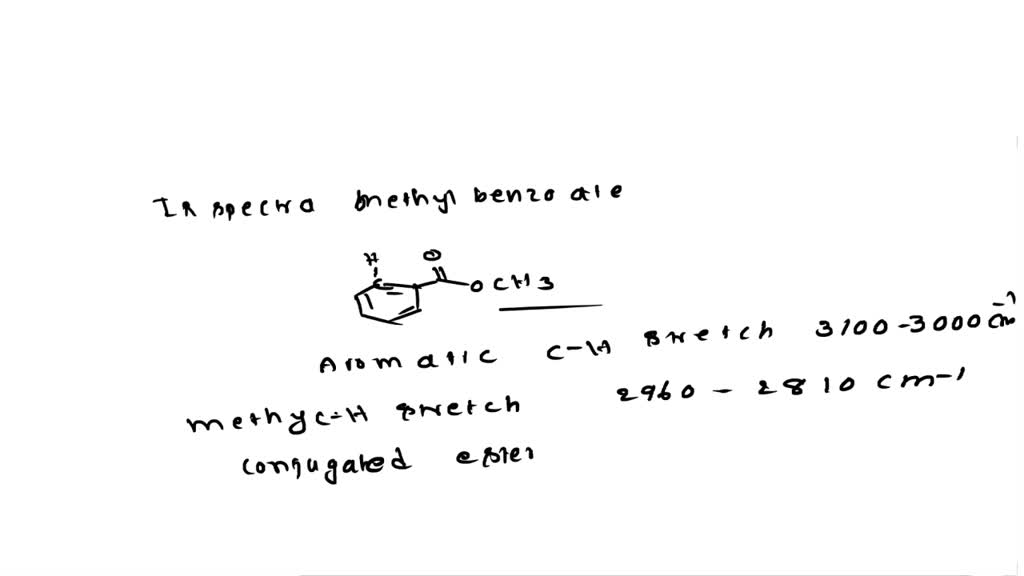 IR spectra methyl benzoate
H O
C OCH3
Aromatic C-H stretch 3100-3000 cm-1
methyc-H stretch 2960 - 2810 cm-1
conjugated ester